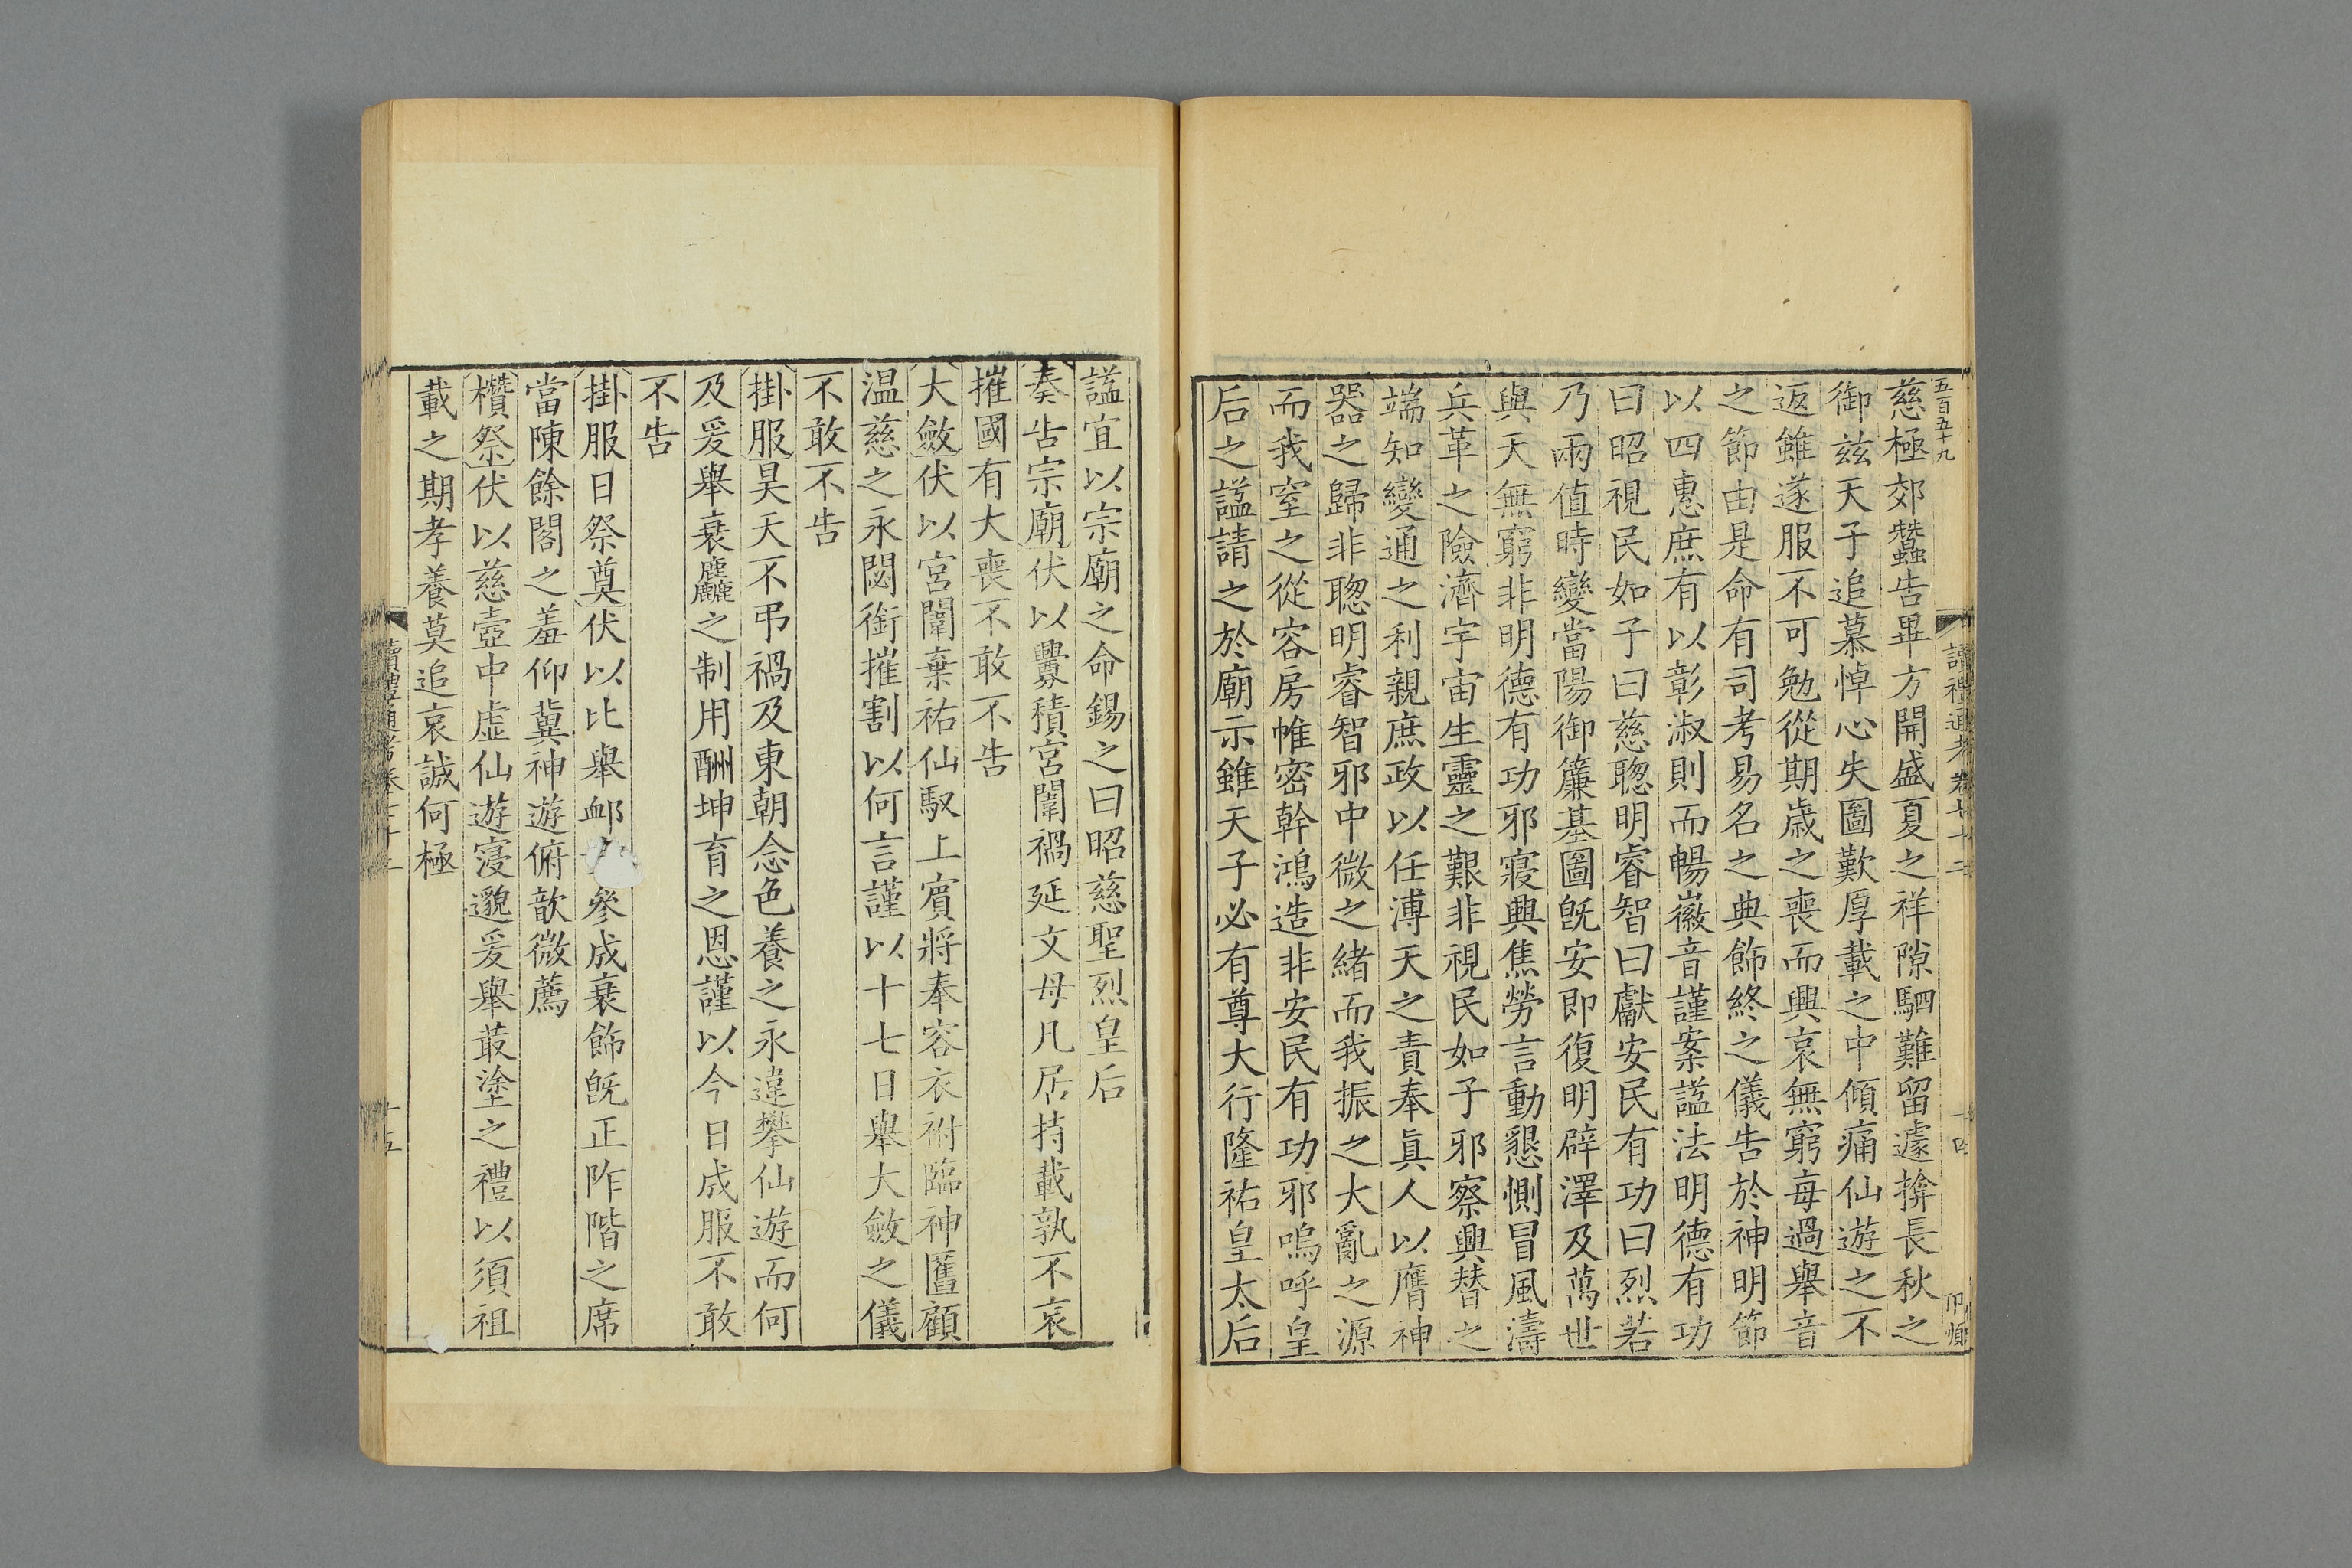 五百五十九
慈極郊蠶告畢方開盛夏之祥隙駟難留遽揜長秋之
御茲天子追慕悼心失圖歎厚載之中傾痛仙遊之不
返雖遂服不可勉從期歲之喪而興哀無窮每過舉音
之節由是命有司考易名之典飾終之儀告於神明節
以四惠庶有以彰淑則而暢徽音謹案諡法明德有功
曰昭視民如子曰慈聰明睿智曰獻安民有功曰烈若
乃雨值時變當陽御簾基圖旣安即復明辟澤及萬世
與天無窮非明德有功邪寢興焦勞言動懇惻冒風濤
兵革之險濟宇宙生靈之艱非視民如子邪察興替之
端知變通之利親庶政以任溥天之責奉眞人以膺神
器之歸非聰明睿智邪中微之緒而我振之大亂之源
而我窒之從容房帷密幹鴻造非安民有功邪嗚呼皇
后之諡請之於廟示雖天子必有尊大行隆祐皇太后
讀禮通考卷七十二
十四
諡宜以宗廟之命錫之曰昭慈聖烈皇后
奏告宗廟伏以釁積宮闈禍延文母凡居持載孰不哀
摧國有大喪不敢不告
大斂伏以宮闈棄祐仙馭上賓將奉容衣祔臨神匶顧
温慈之永閟銜摧割以何言謹以十七日舉大斂之儀
不敢不告
掛服昊天不弔禍及東朝念色養之永違攀仙遊而何
及爰舉衰麤之制用酬坤育之恩謹以今日成服不敢
不告
掛服日祭奠伏以比舉䘏參成衰飾旣正阼階之席
當陳餘閣之羞仰冀神遊俯歆微薦
欑祭伏以慈壼中虛仙遊寖邈爰舉菆塗之禮以須祖
載之期孝養莫追哀誠何極
讀禮通考卷七十二
十五